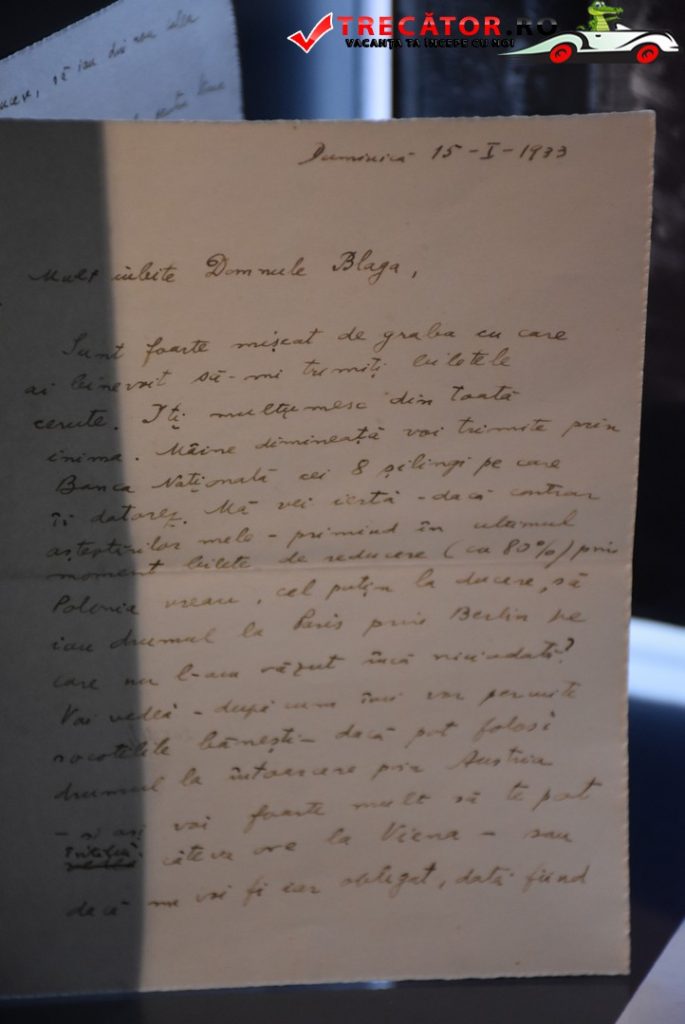 TRECĂTOR.RO
VACANȚA TA ÎNCEPE CU NOI
să iau din nou
Duminică 15-I-1933
Mult iubite Domnule Blaga,
Sunt foarte mișcat de graba cu care
ai binevoit să-mi trimiți biletele
cerute. Iți mulțumesc din toată
inima. Mâine dimineață voi trimite prin
Banca Națională cei 8 șilingi pe care
îi datorez. Mă vei iertă - dacă contrar
așteptărilor mele - primind în ultimul
moment bilete de reducere (cu 80%) prin
Polonia vreau, cel puțin la ducere, să
iau drumul la Paris prin Berlin pe
care nu l-am văzut încă niciodată?
Voi vedeà - după cum îmi vor permite
socotelile bănești - dacă pot folosi
drumul la întoarcere prin Austria
- și aș voi foarte mult să te pot
întâlni câteva ore la Viena - sau
dacă nu voi fi iar obligat, dată fiind